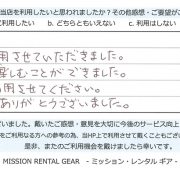 当店を利用したいと思われましたか？その他感想・ご要望
利用したい b. どちらともいえない c. 利用はしない
用させていただきました。
楽しむことができました。
用させてください。
ありがとうございました。
いました。戴いたご感想・意見を大切に今後のサービス向上
をご利用になる方への参考の為、当HP上で利用させて戴くこともござ
是非、またのご利用機会を戴けましたら幸いです。
MISSION RENTAL GEAR - ミッション・レンタル ギア -